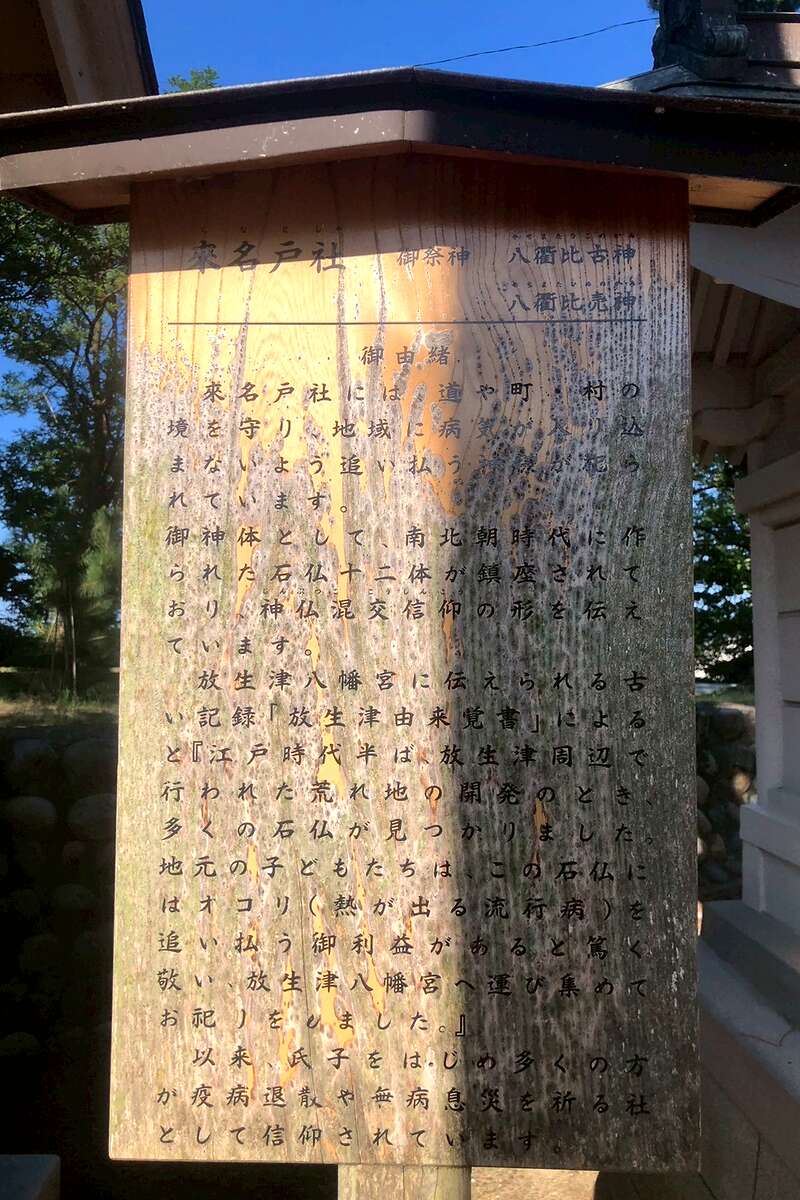 くなとしゃ
來名戸社 御祭神 八衢比古神
八衢比売神
御由緒
來名戸社には、道や町・村の
境を守り、地域に病気が入り込
まないよう追い払う神様が祀ら
れています。
御神体として、南北朝時代に作
られた石仏十二体が鎮座されて
おり、神仏混交信仰の形を伝え
ています。
放生津八幡宮に伝えられる古
い記録「放生津由来覚書」による
と『江戸時代半ば、放生津周辺で
行われた荒れ地の開発のとき、
多くの石仏が見つかりました。
地元の子どもたちは、この石仏に
はオコリ(熱が出る流行病)を
追い払う御利益があると篤く
敬い、放生津八幡宮へ運び集めて
お祀りをしました。』
以来、氏子をはじめ多くの方
が疫病退散や無病息災を祈る社
として信仰されています。